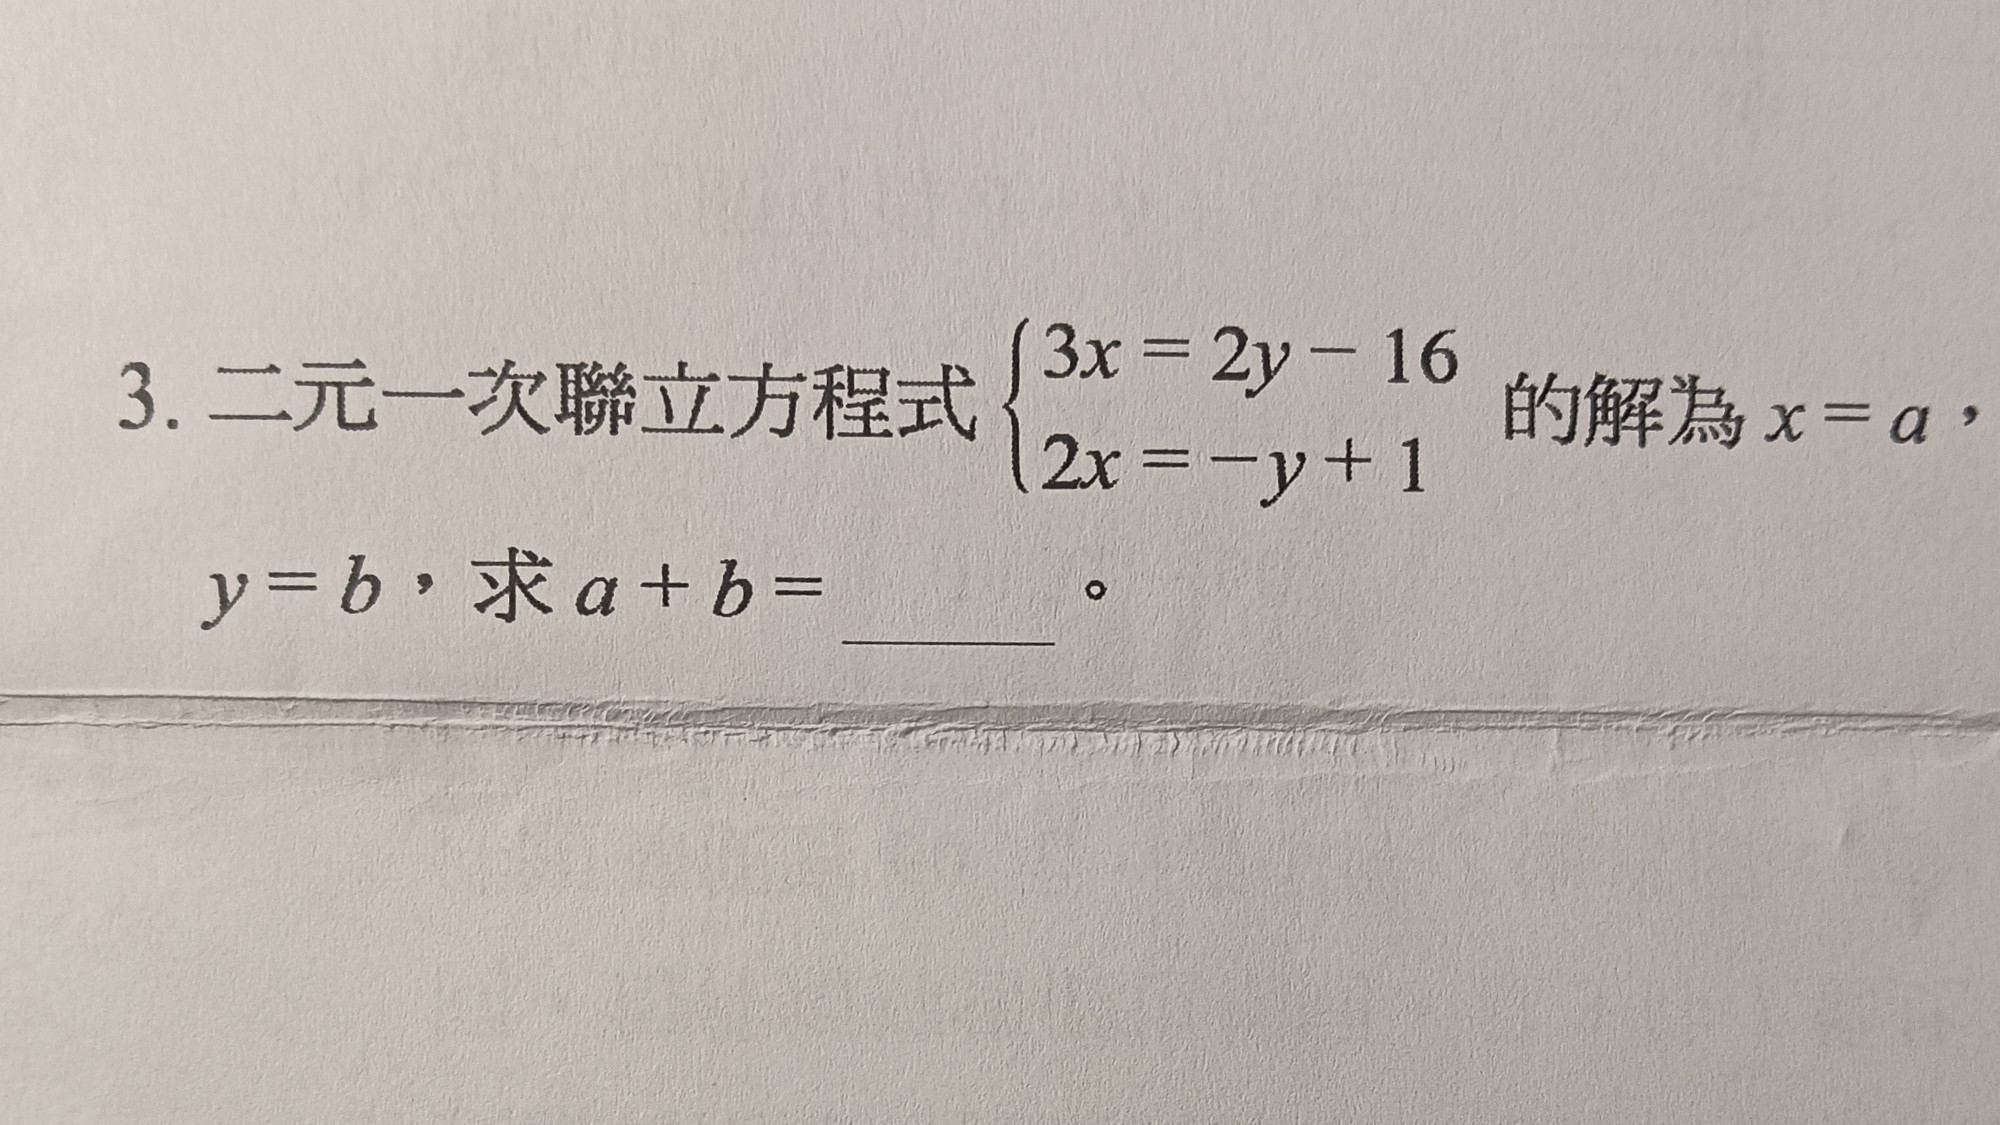 3. 二元一次聯立方程式 { 3x = 2y − 16
2x = −y + 1 的解為 x = a，
y = b，求 a + b = ______。